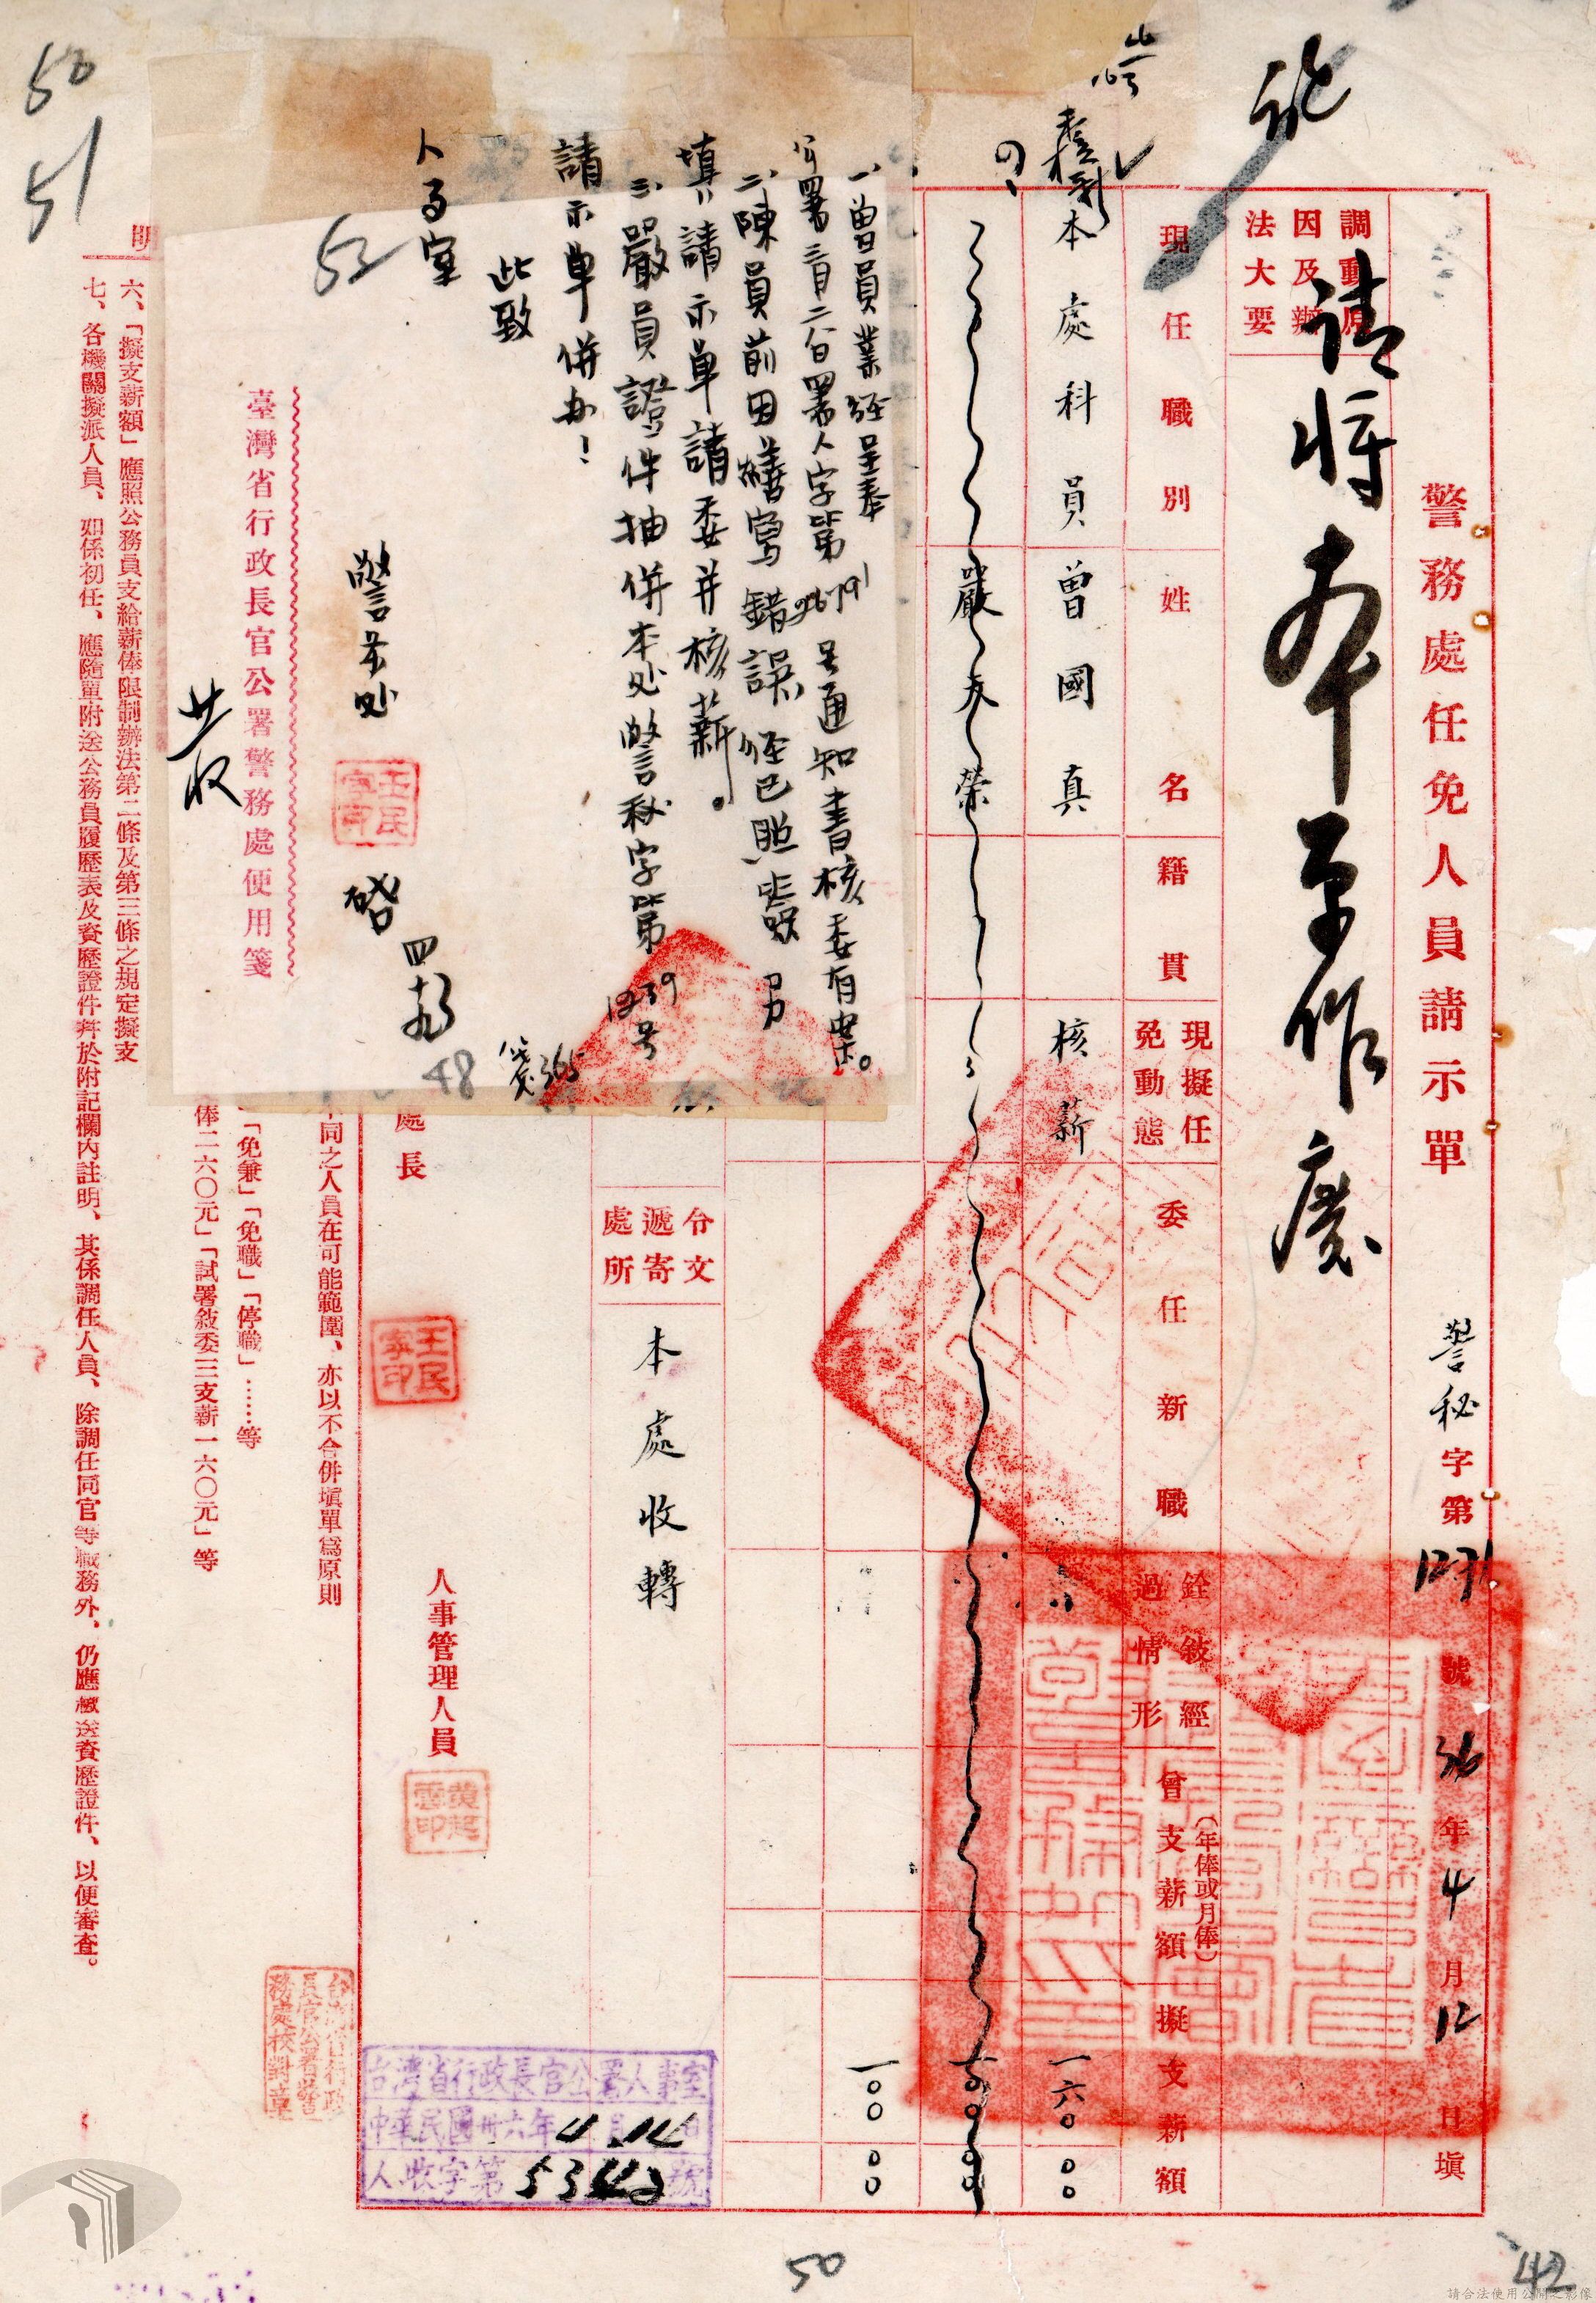 警務處任免人員請示單
警秘字第1271號 36年4月12日填
調動原因及辦法大要
請將本單作廢
現任職別
姓名
籍貫
現擬任免動態
委任新職
銓敍經過情形
曾支薪額(年俸或月俸)
擬支薪額
本處科員
曾國真
核薪
一六〇〇〇
嚴友榮
一〇〇〇〇
一〇〇〇〇
令文遞寄處所
本處收轉
處長
人事管理人員
台灣省行政長官公署人事室
中華民國卅六年4月14日
人收字第5342號
一、曾員業經呈奉
公署三月二八日署人字第26791号通知書核委有案。
二、陳員前因繕寫錯誤經已照單另
填請示單請委并核薪。
三、嚴員證件抽併本处警秘字第1239号
請示單併办!
此致
人事室
警务处
啓
四
箋365
臺灣省行政長官公署警務處便用箋
共收
同之人員在可能範圍、亦以不合併塡單爲原則
「免兼」「免職」「停職」……等
俸二六〇元」「試署敍委三支薪一六〇元」等
明
六、「擬支薪額」應照公務員支給薪俸限制辦法第二條及第三條之規定擬支
七、各機關擬派人員、如係初任、應隨單附送公務員履歷表及資歷證件幷於附記欄內註明、其係調任人員、除調任同官等職務外、仍應檢送資歷證件、以便審查。
50
51
52
48
50
42
請合法使用公開之影像